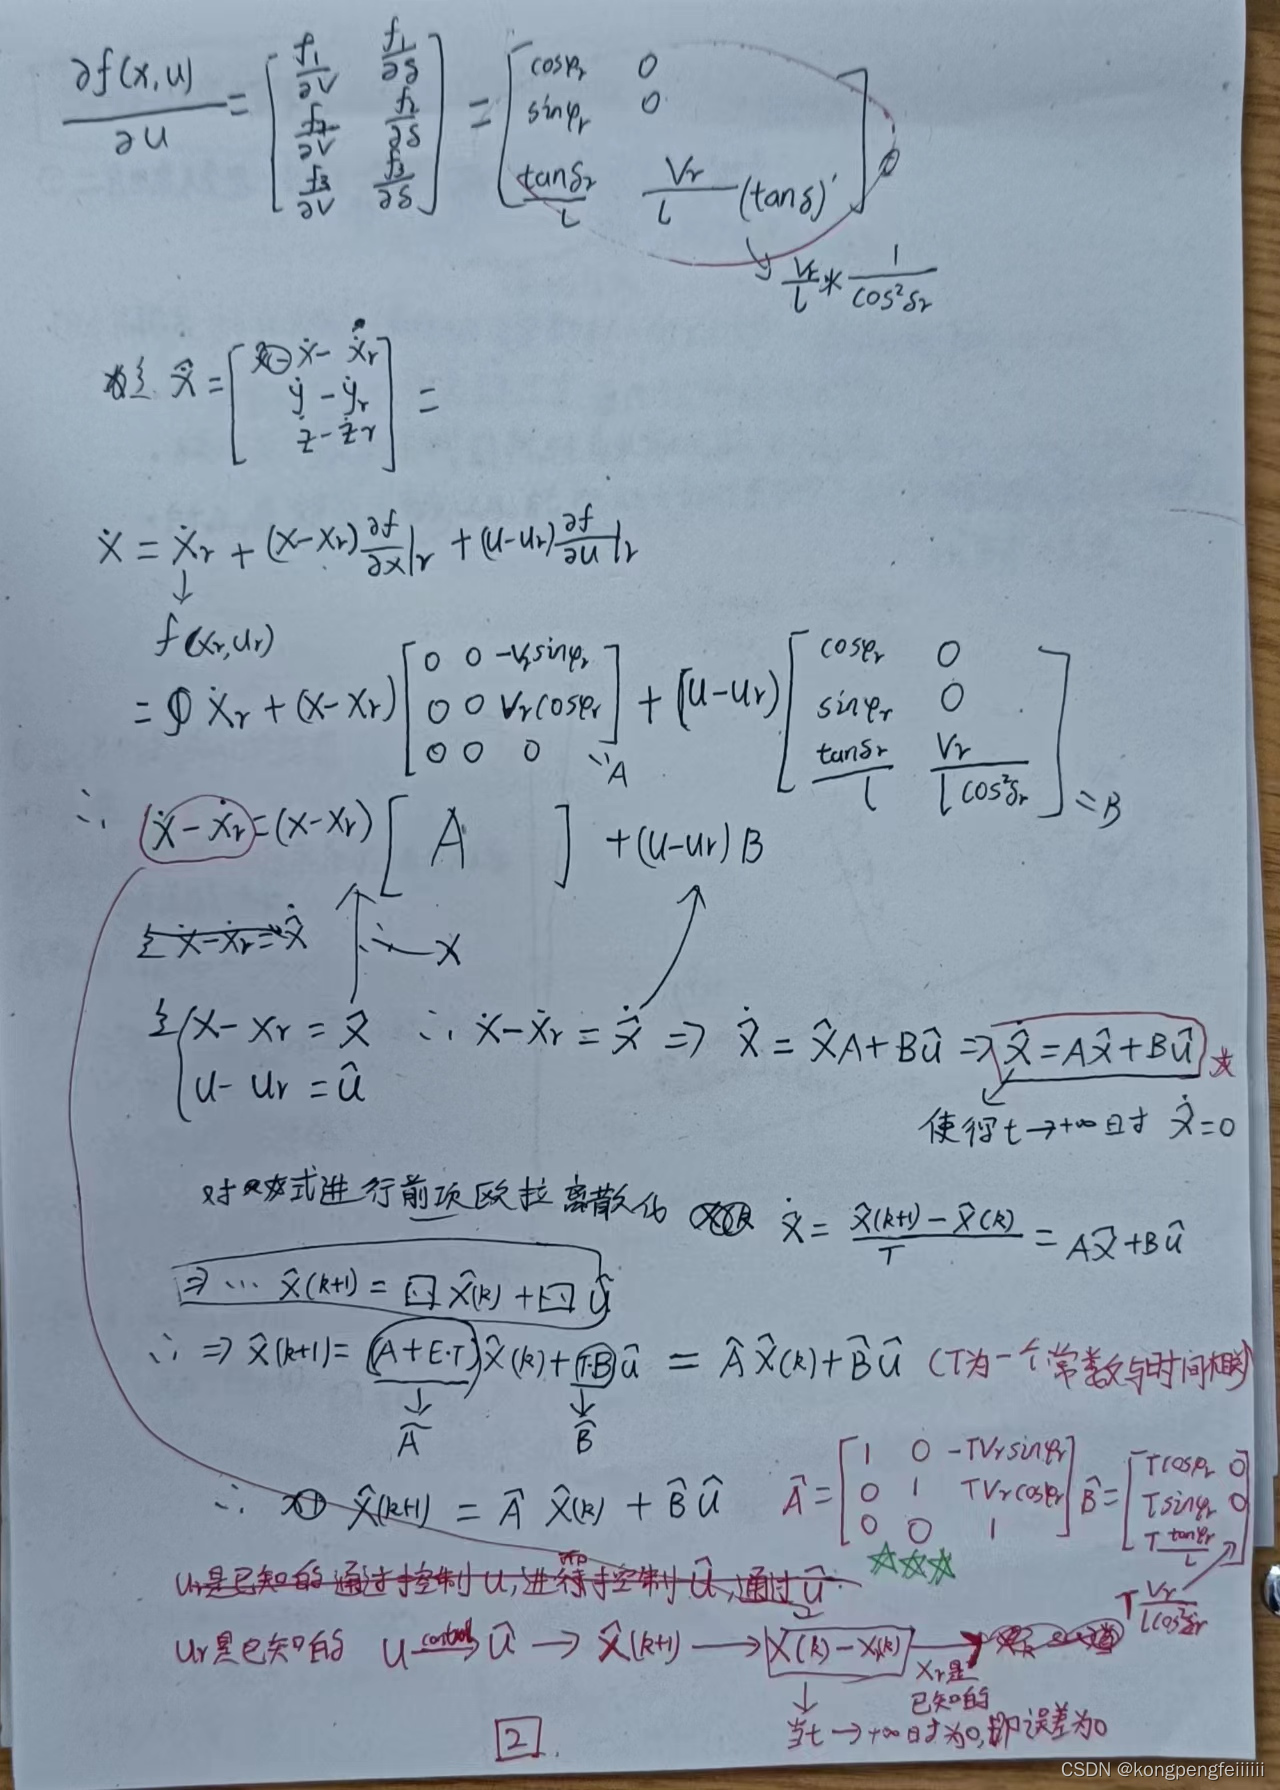 ∂f(x,u)/∂u = [f₁/∂V f₁/∂δ; f₂/∂V f₂/∂δ; f₃/∂V f₃/∂δ] = [cosφr 0; sinφr 0; tanδr/l Vr/l (tanδ)']
↘ Vr/l * 1/cos²δr
令 X̂ = [ẋ-ẋr; ẏ-ẏr; ż-żr] =
Ẋ = Ẋr + (X-Xr)∂f/∂x|r + (u-ur)∂f/∂u|r
↓
f(xr,ur)
= Ẋr + (X-Xr)[0 0 -Vrsinφr; 0 0 Vrcosφr; 0 0 0] + (u-ur)[cosφr 0; sinφr 0; tanδr/l Vr/lcos²δr]
"A
=B
∴ (Ẋ-Ẋr)=(X-Xr)[A] + (u-ur)B
令 Ẋ-Ẋr=X̂
∴ X
令{X-Xr = X̂ ∴ Ẋ-Ẋr = X̂̇ ⇒ X̂̇ = X̂A+Bû ⇒ X̂̇=AX̂+Bû ☆
u-ur = û
使得t→+∞时 X̂̇=0
对 式进行前项欧拉离散化 X̂̇ = X̂(k+1)-X̂(k)/T = AX̂+Bû
⇒ ... X̂(k+1) = □X̂(k) + □ û
∴ ⇒ X̂(k+1) = (A+E·T)X̂(k)+(T·B)û = ÂX̂(k)+B̂û (T为一个常数与时间相关)
↓ ↓
Â B̂
∴ X̂(k+1) = Â X̂(k) + B̂û Â=[1 0 -TVrsinφr; 0 1 TVrcosφr; 0 0 1] B̂=[Tcosφr 0; Tsinφr 0; T tanφr/l
☆☆☆
T Vr/lcos²δr
ur是已知的通过控制u,进而控制û,通过û
ur是已知的 u control→ û → X̂(k+1) → X(k)-Xr(k) →
Xr是
已知的
↓
当t→+∞时为0,即误差为0
2
CSDN @kongpengfeiiiiii